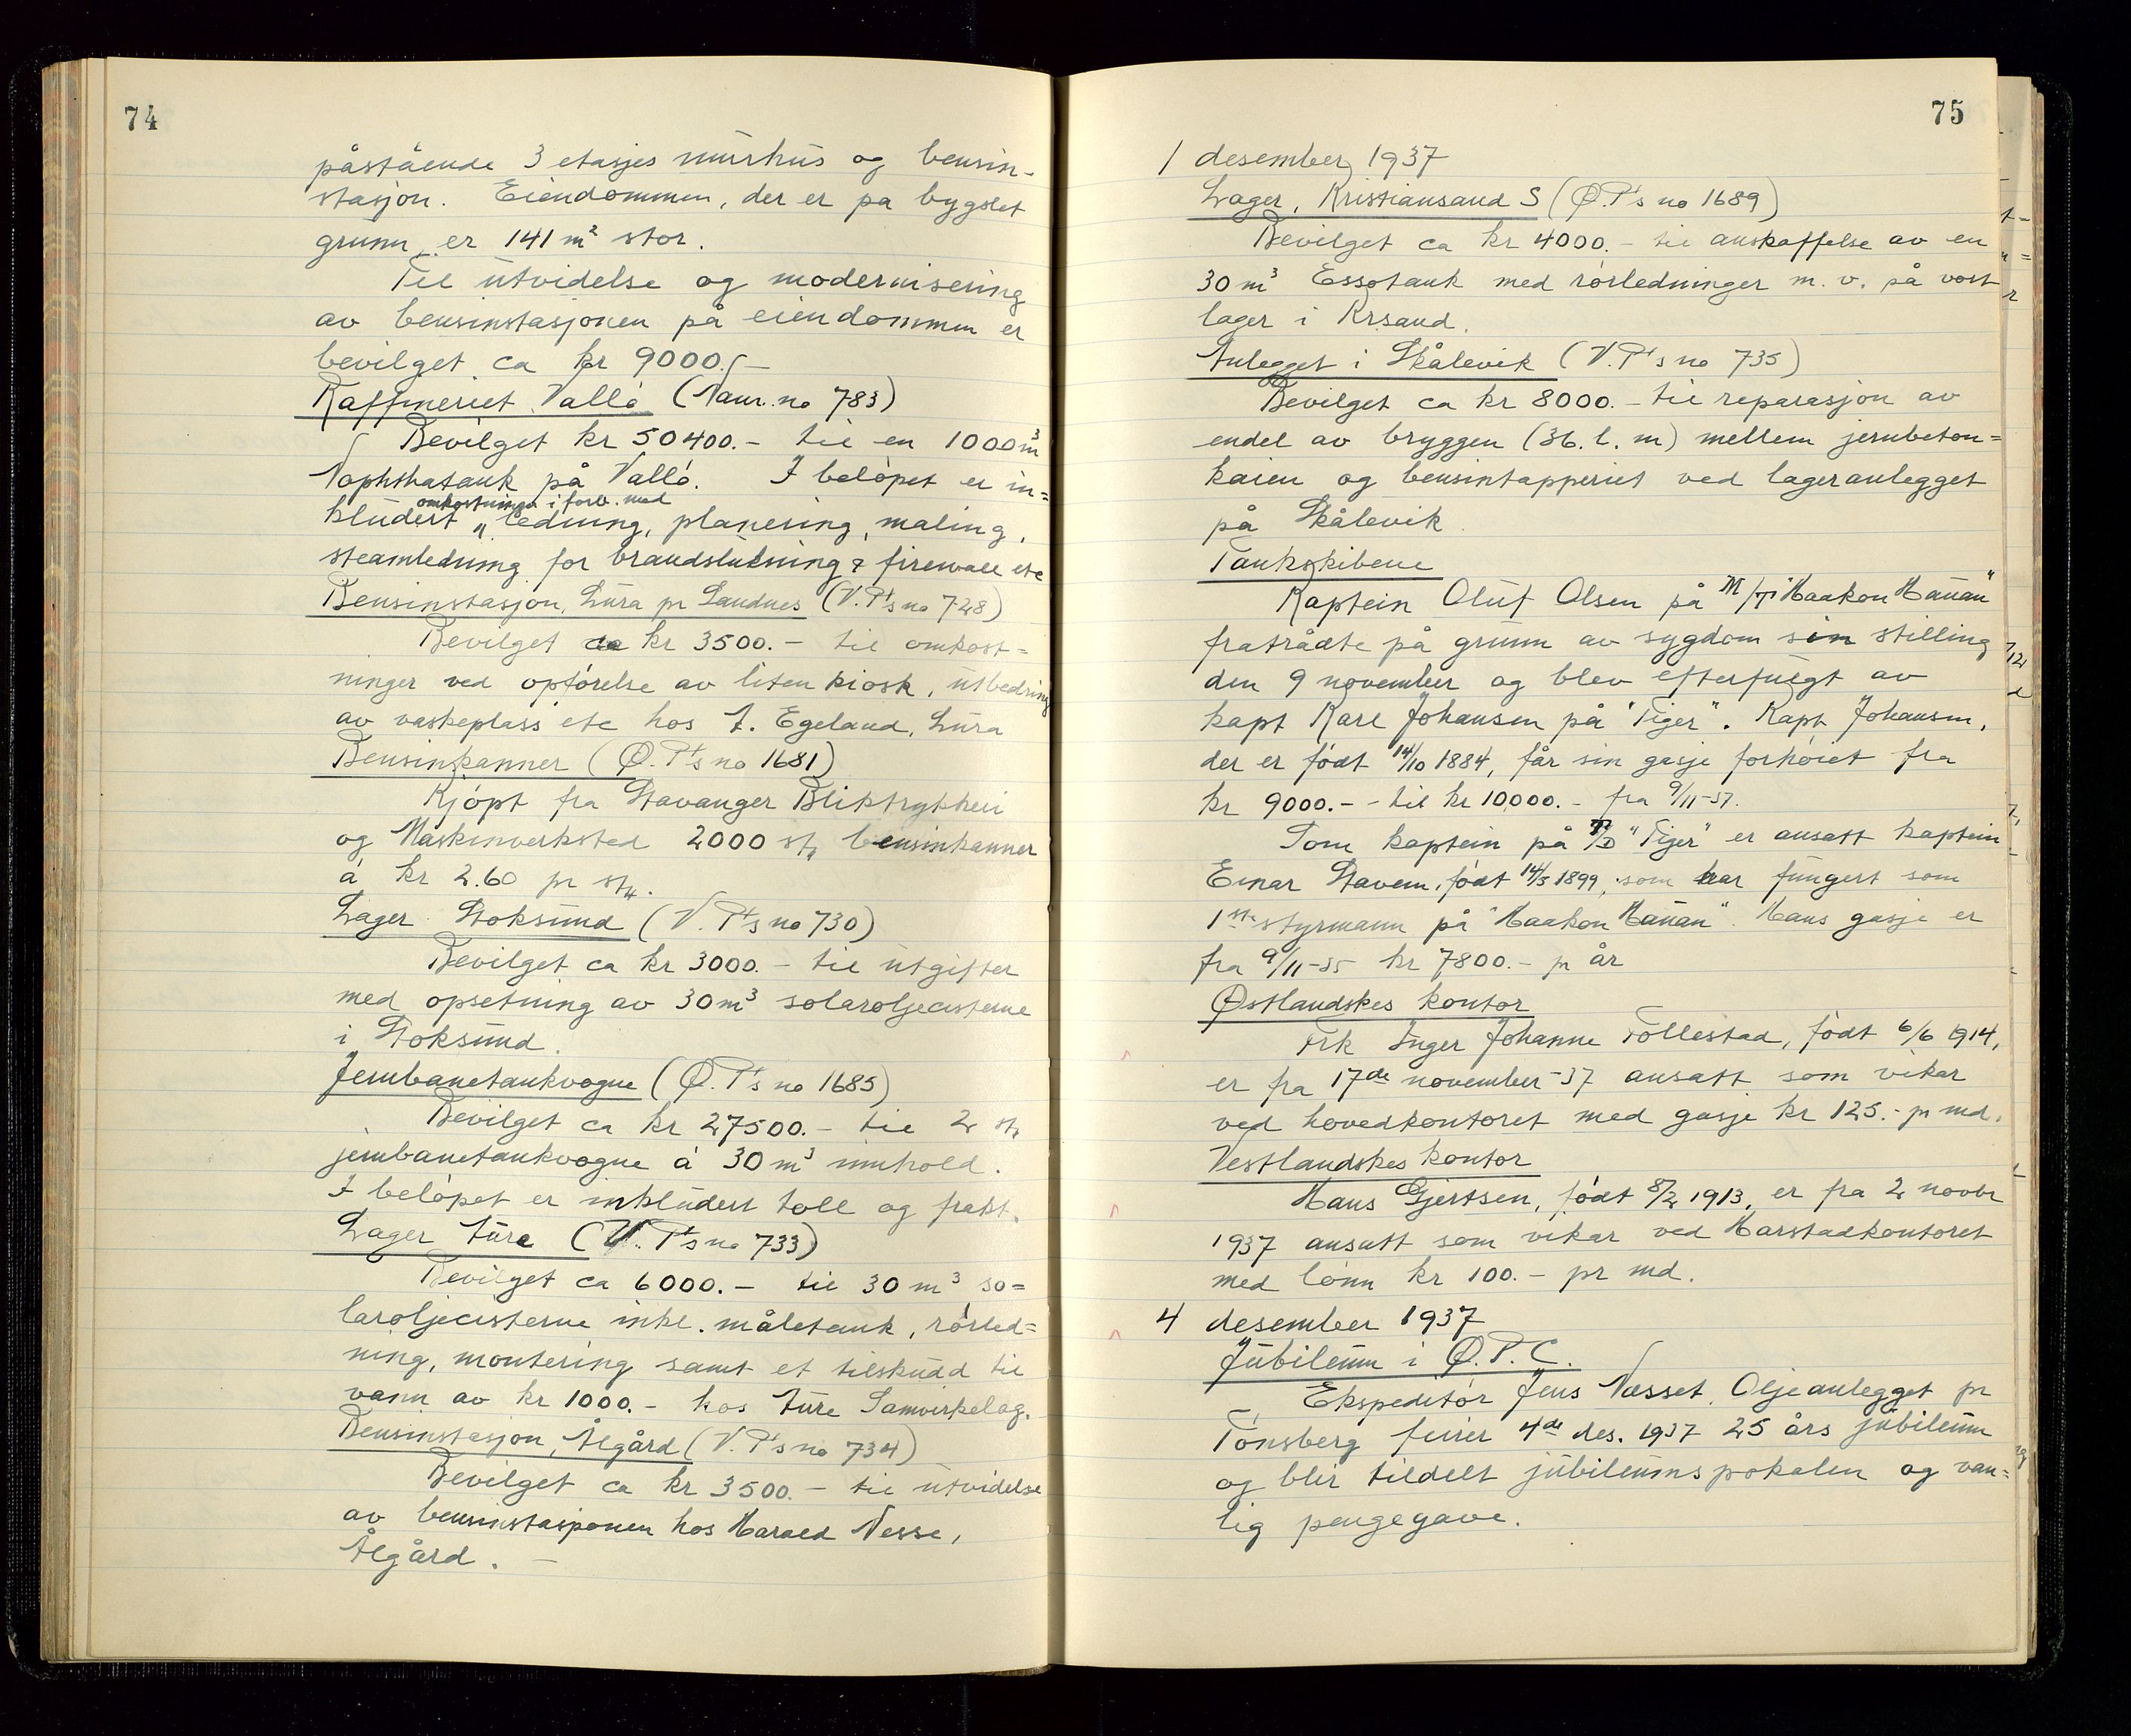 74
påstående 3 etasjes murhus og bensin-
stasjon. Eiendommen, der er på bygslet
grunn, er 141 m² stor.
Til utvidelse og modernisering
av bensinstasjonen på eiendommen er
bevilget ca kr 9000.-
Raffineriet Vallø (Naur. no 783)
Bevilget kr 50400.- til en 1000 m³
Naphthatank på Vallø. I beløpet er in=
omkostninger i forb. med
kludert " ledning, planering, maling,
steamledning for brandslukning & firewall etc
Bensinstasjon, Lura pr Sandnes (V.P's no 728)
Bevilget ca kr 3500.- til omkost=
ninger ved opførelse av liten kiosk, utbedring
av vaskeplass etc hos T. Egeland, Lura
Bensinkanner (Ø.P's no 1681)
Kjøpt fra Stavanger Bliktrykkeri
og Maskinverksted 2000 stk bensinkanner
á kr 2.60 pr stk.
Lager Stoksund (V.P's no 730)
Bevilget ca kr 3000.- til utgifter
med opsetning av 30 m³ solaroljecisterne
i Stoksund.
Jernbanetankvogne (Ø.P's no 1685)
Bevilget ca kr 27500.- til 2 stk
jernbanetankvogne á 30 m³ innhold.
I beløpet er inkludert toll og frakt.
Lager Aure (V.P's no 733)
Bevilget ca 6000.- til 30 m³ so=
laroljecisterne inkl. måletank, rørled=
ning, montering samt et tilskudd til
vann av kr 1000.- hos Aure Samvirkelag.
Bensinstasjon, Ålgård (V.P's no 734)
Bevilget ca kr 3500.- til utvidelse
av bensinstasjonen hos Harald Nesse,
Ålgård. -
75
1 desember 1937
Lager, Kristiansand S (Ø.P's no 1689)
Bevilget ca kr 4000.- til anskaffelse av en
30 m³ Essotank med rørledninger m. v. på vort
lager i Krsand.
Anlegget i Skålevik (V.P's no 735)
Bevilget ca kr 8000.- til reparasjon av
endel av bryggen (36. l. m) mellem jernbeton=
kaien og bensintapperiet ved lageranlegget
på Skålevik.
Tankskibene
Kaptein Oluf Olsen på M/T "Haakon Hauan"
fratrådte på grunn av sygdom sin stilling
den 9 november og blev efterfulgt av
kapt Karl Johansen på "Tiger". Kapt Johansen,
der er født 14/10 1884, får sin gasje forhøiet fra
kr 9000.- - til kr 10000.- fra 9/11-37.
Som kaptein på T/D "Tiger" er ansatt kaptein
Einar Stavem, født 14/5 1899, som har fungert som
1ste styrmann på "Haakon Hauan". Hans gasje er
fra 9/11-35 kr 7800.- pr år
Østlandskes kontor
Frk Inger Johanne Follestad, født 6/6 1914,
er fra 17de november -37 ansatt som vikar
ved hovedkontoret med gasje kr 125.- pr md.
Vestlandskes kontor
Hans Gjertsen, født 8/2 1913, er fra 2 novbr
1937 ansatt som vikar ved Harstadkontoret
med lønn kr 100.- pr md.
4 desember 1937
Jubileum i Ø.P.C.
Ekspeditør Jens Næsset, Oljeanlegget pr
Tønsberg feirer 4de des. 1937 25 års jubileum
og blir tildelt jubileumspokalen og van=
lig pengegave.